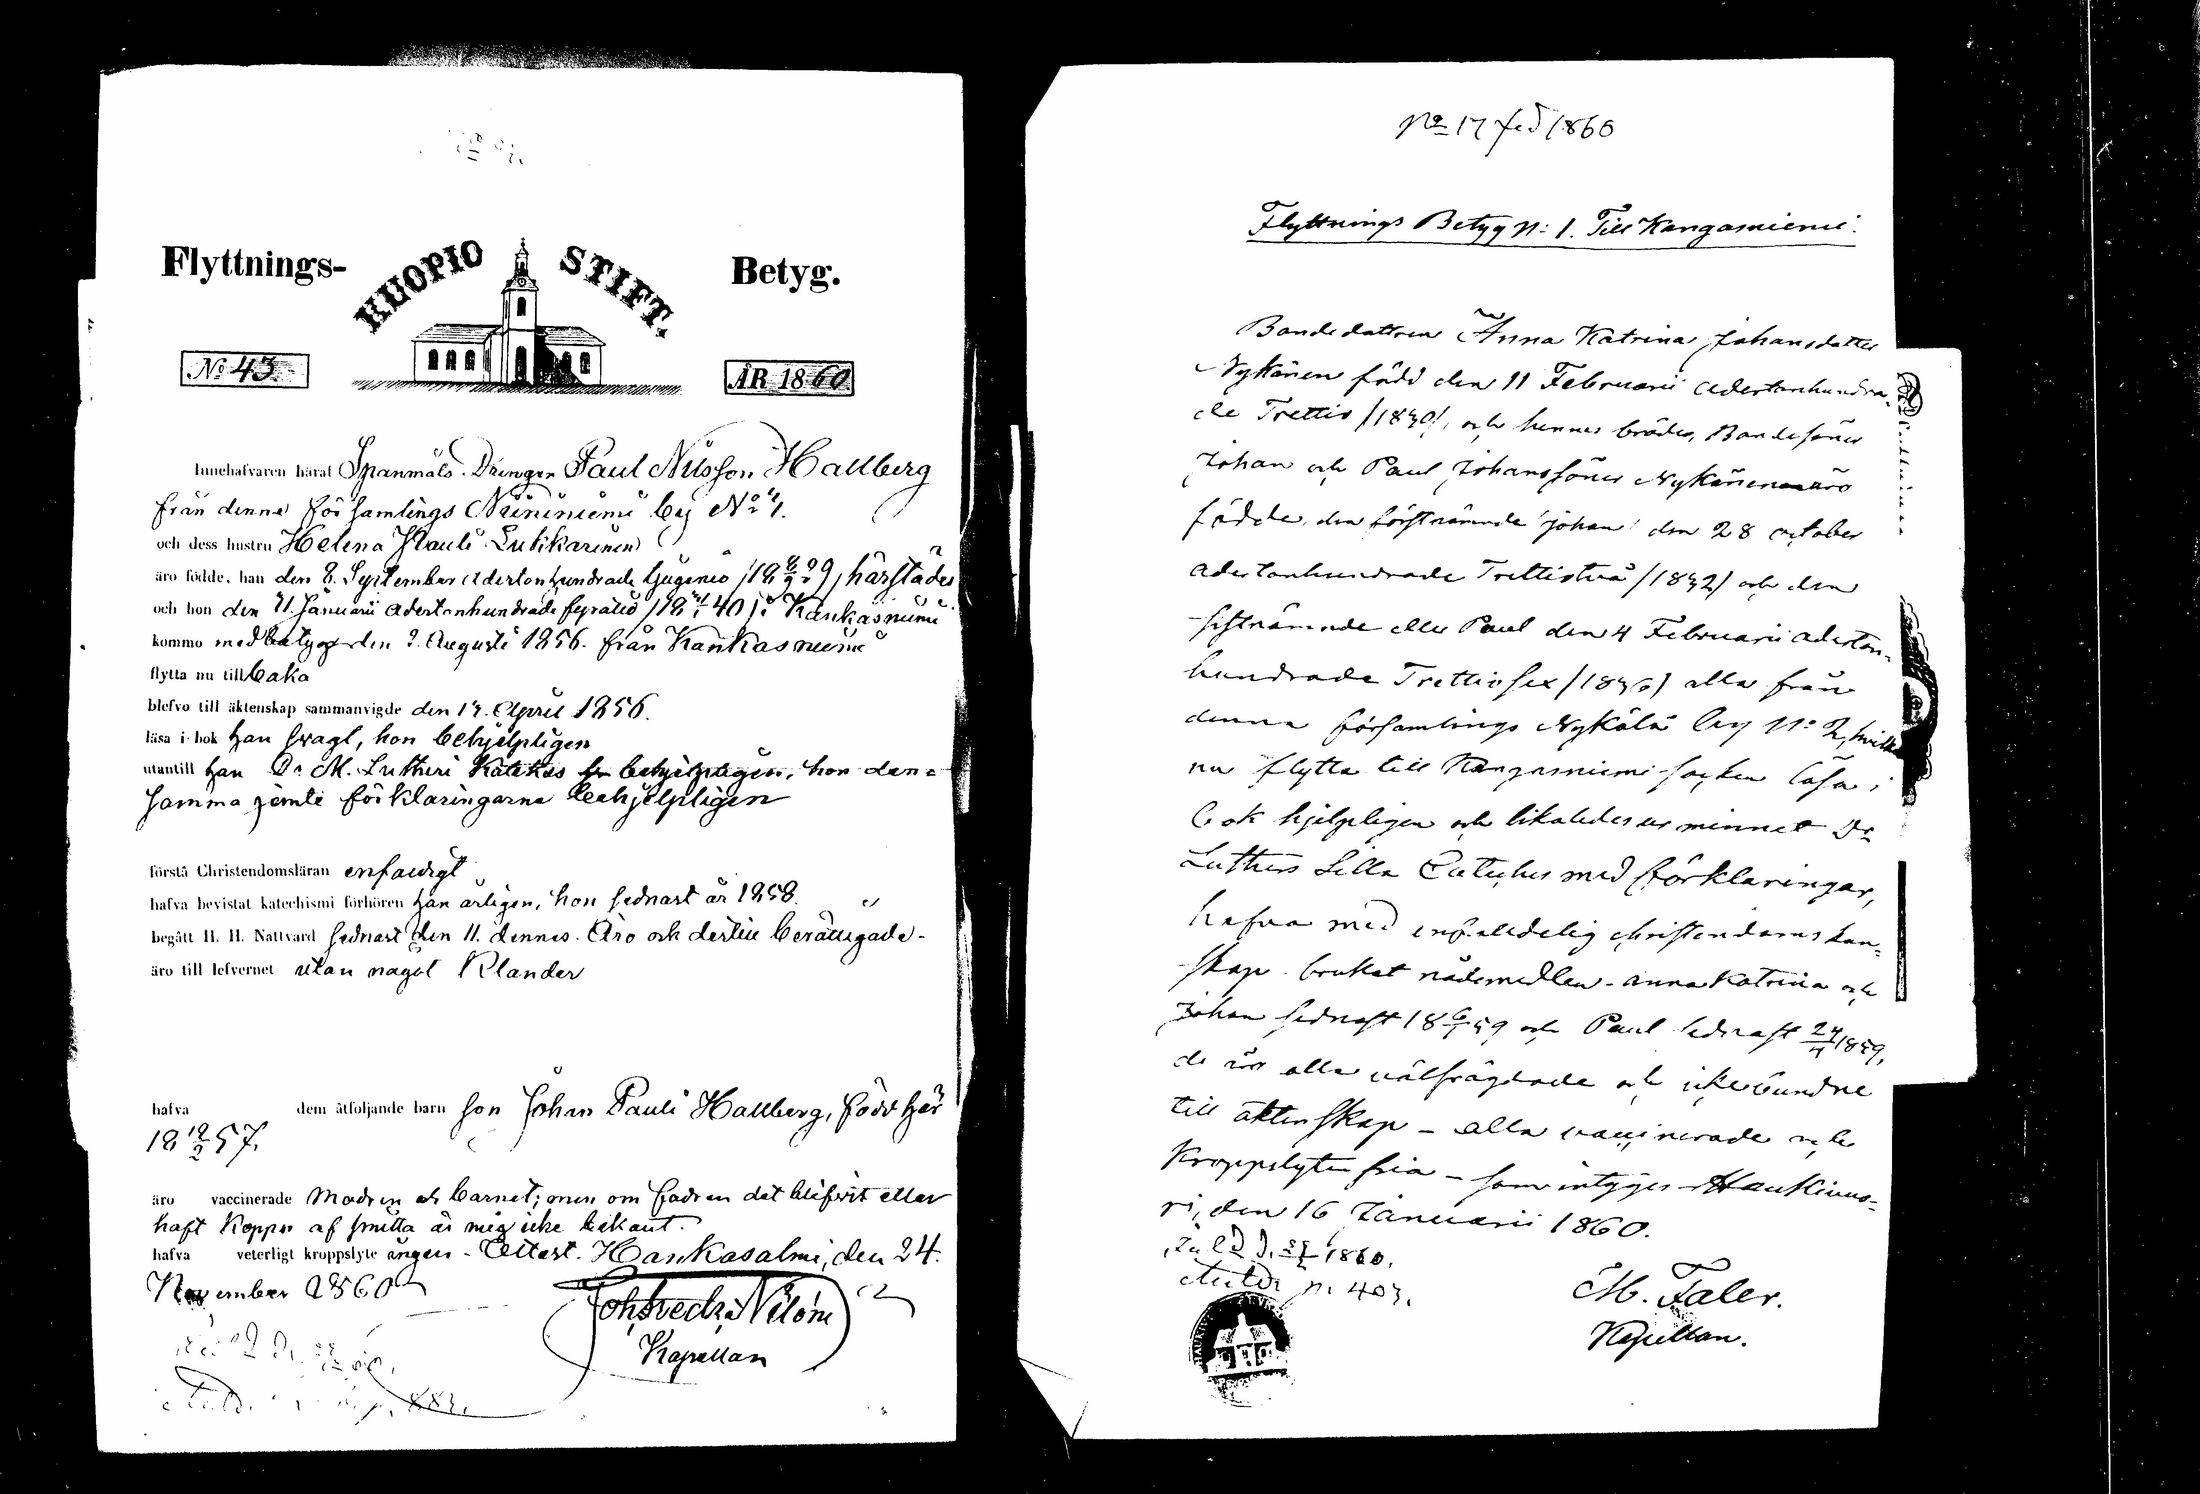 Flyttnings- KUOPIO STIFT. Betyg.
No 43. ÅR 1860
Innehafvaren härat Spanmåls-Drengen Paul Nilsson Hallberg
från denna församlings Niininiemi by No 4.
och dess hustru Helena Pauli Lukkarinen
äro födde, han den 8. September adertonhundrade tjugenio /18 8/9 29/ härstädes
och hon den 21 Januarii adertonhundrade fyratio /18 21/1 40/ i Kankasniemi
kommo med betyg den 2. Augusti 1856. från Kankasniemi
flytta nu tillbaka
blefvo till äktenskap sammanvigde den 13. April 1856.
läsa i bok han svagt, hon behjelpligen
utantill han Dr M. Lutheri Katekes behjelpligen, hon den-
samma jemte förklaringarna behjelpligen
förstå Christendomsläran enfaldigt
hafva bevistat katechismi förhören han årligen, hon sednast år 1858.
begått H. H. Nattvard sednast den 11. dennes. Äro och dertill berättigade-
äro till lefvernet utan något Klander
hafva dem åtföljande barn son Johan Pauli Hallberg, född här
18 12/2 57.
äro vaccinerade Modren och barnet; men om fadren det blifvit eller
haft Koppor af smitta är mig icke bekant.
hafva veterligt kroppslyte ingen - Attest. Hankasalmi, den 24.
November 1860
Joh. Fredr. Nilóni
Kapellan
No 17 fed 1860
Flyttnings Betyg N: 1. Till Kangasniemi.
Bondedottren Anna Katrina Johansdotter
Nykänen född den 11 Februarii adertonhundra-
de Trettio /1830/, och hennes bröder, Bondesöner
Johan och Paul Johanssöner Nykänen äro
födde, den förstnämnde Johan den 28 october
adertonhundrade Trettiotvå /1832/ och den
sistnämnde eller Paul den 4 Februarii aderton-
hundrade Trettiosex /1836/ alla från
denna församlings Nykälä by No 2, hvilka
nu flytta till Kangasniemi socken läsa i
bok hjelpligen och likaledes ur minnet Dr
Luthers Lilla Cateches med förklaringar,
hafva med enfaldelig christendoms kun-
skap brukat nådemedlen - Anna Katrina och
Johan sednast 18 6/1 59 och Paul sednast 24/4 1859,
de äro alla välfrägdade och icke bundne
till äktenskap - alla vaccinerade och
Kroppslyten fria - som intygas Haukivuo-
ri, den 16 Januarii 1860.
1860.
n. 403.
M. Faler.
Kapellan.